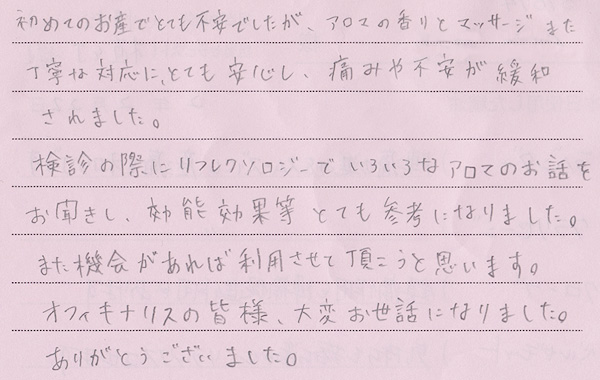 初めてのお産でとても不安でしたが、アロマの香りとマッサージまた
丁寧な対応に、とても安心し、痛みや不安が緩和
されました。
検診の際にリフレクソロジーでいろいろなアロマのお話を
お聞きし、効能効果等とても参考になりました。
また機会があれば利用させて頂こうと思います。
オフィキナリスの皆様、大変お世話になりました。
ありがとうございました。